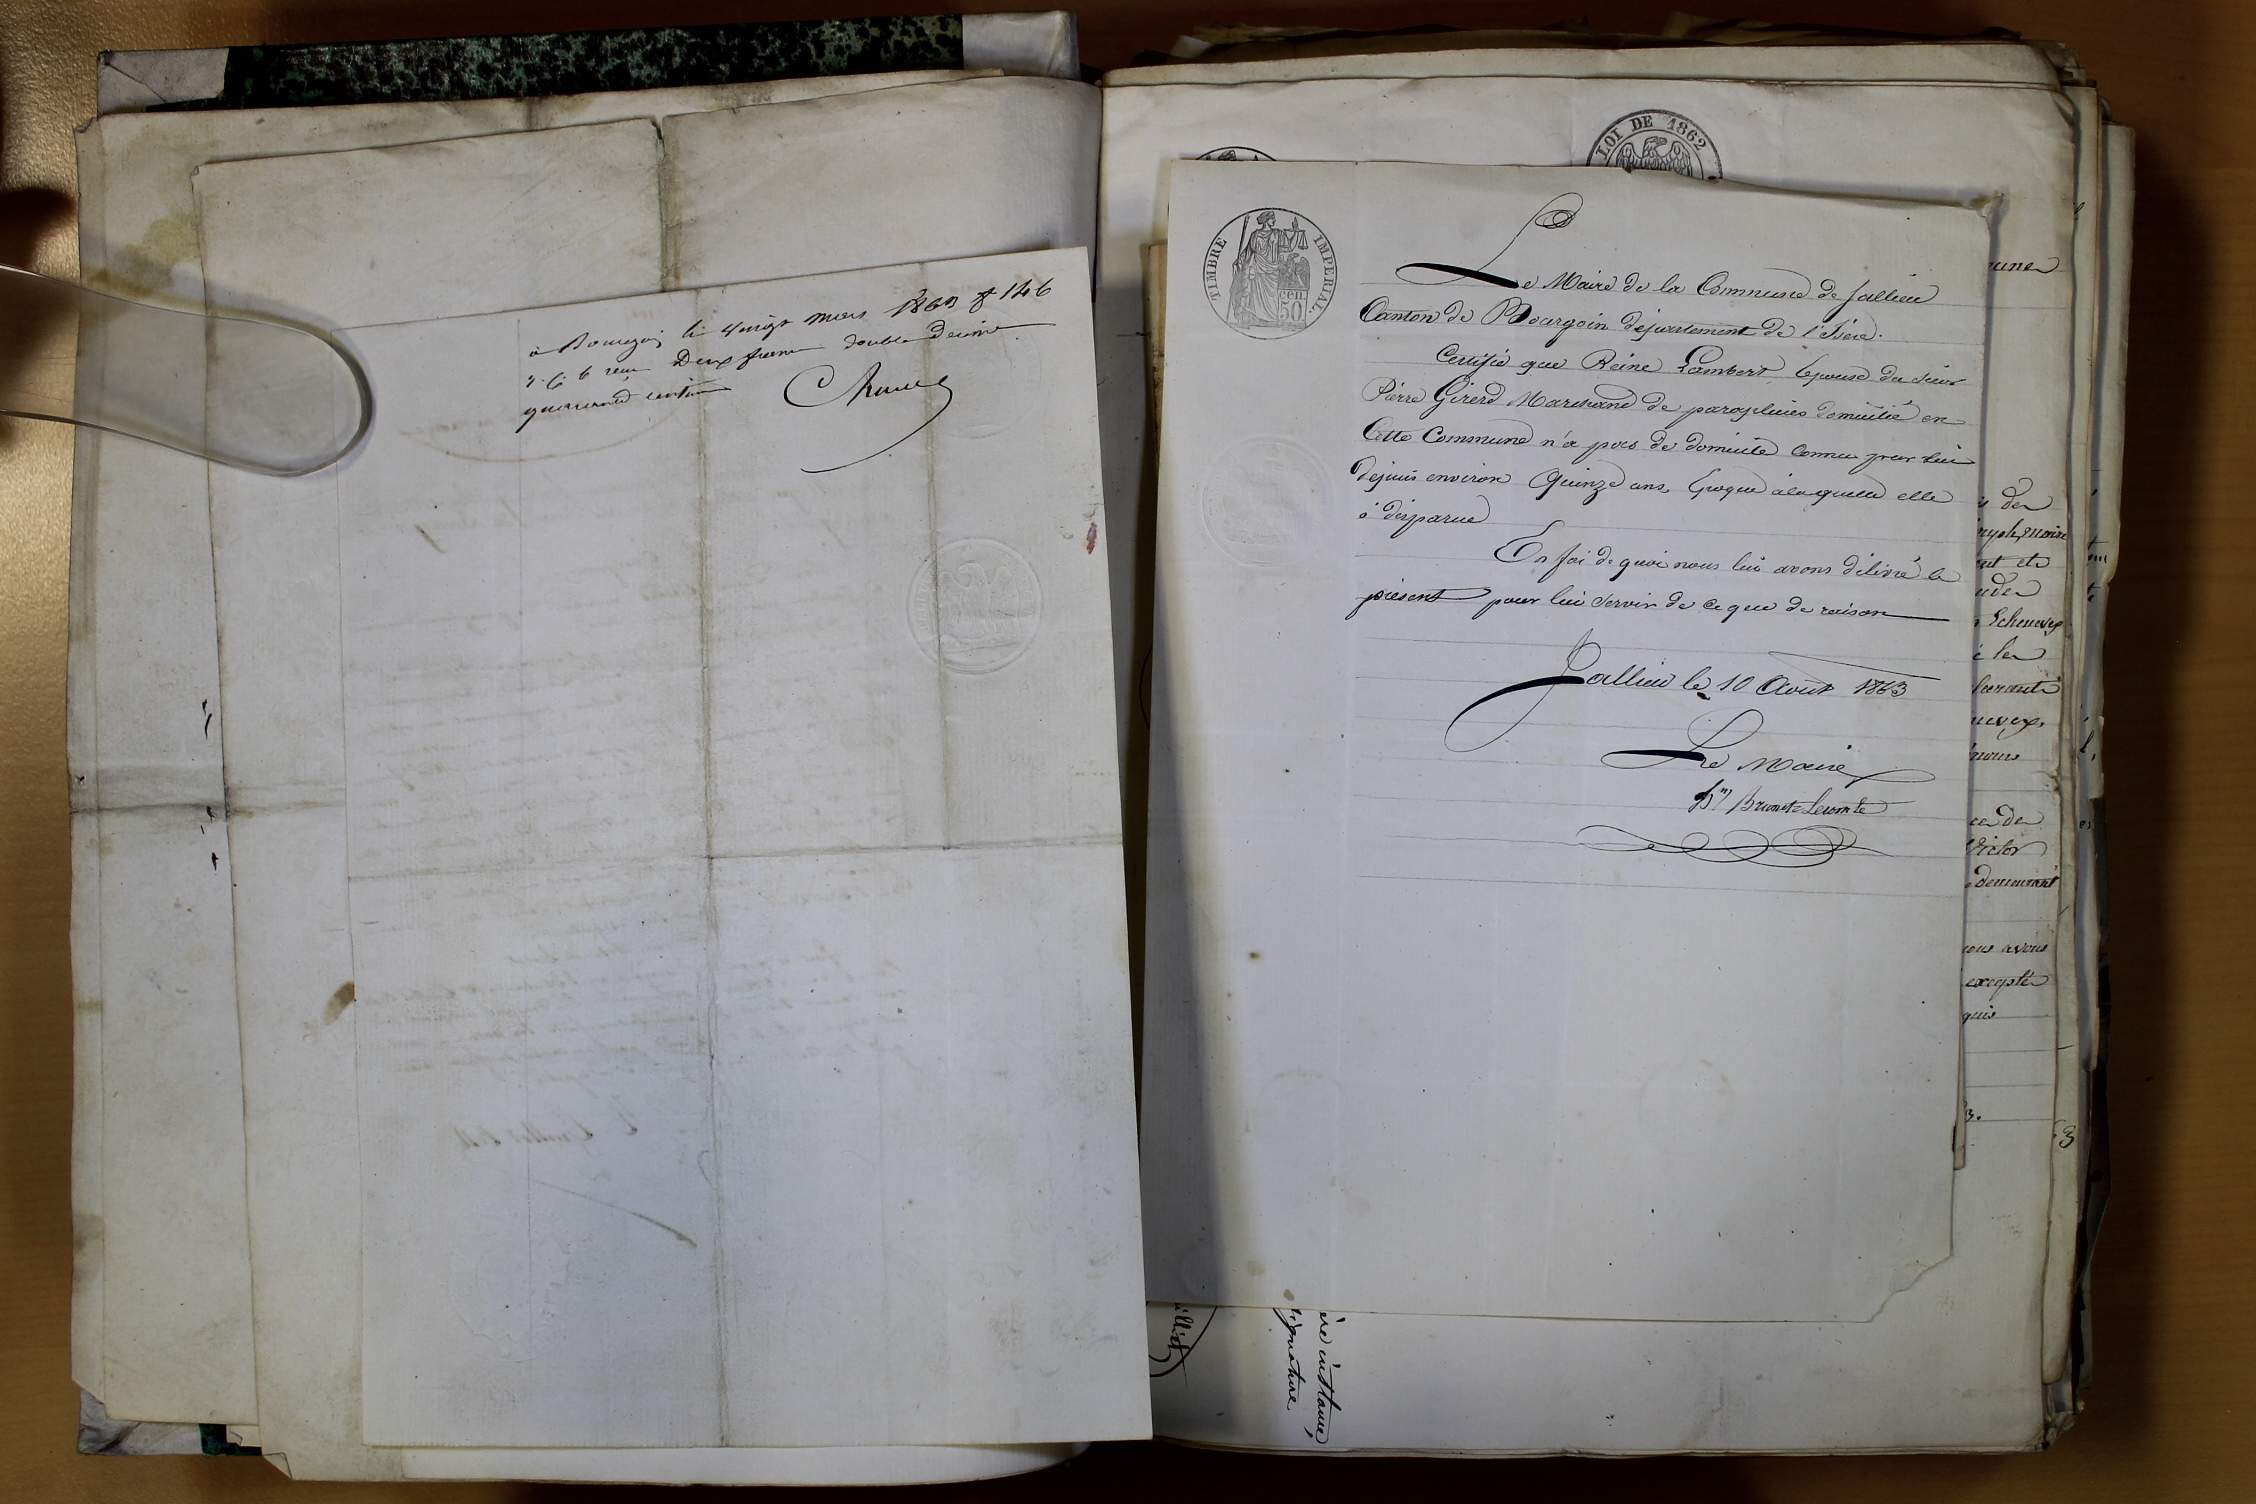 à Bourgoin le vingt mars 1863 f° 146
reçu Deux francs double décime
quarante centimes
LOI DE 1862
TIMBRE IMPERIAL.
50 cen.
Le Maire de la Commune de Jallieu
Canton de Bourgoin département de l'Isère.
Certifie que Reine Lambert, Epouse du sieur
Pierre Girerd Marchand de parapluies domicilié en
Cette Commune n'a pas de domicile connu par lui
depuis environ Quinze ans, Epoque à laquelle elle
à disparue
En foi de quoi nous lui avons délivré le
présent pour lui servir de ce que de raison
Jallieu le 10 Août 1863
Le Maire
Hri Brunet Lecomte
is de
i les
nous
Victor
demeurant
nous avons
excepté
instance,
signature